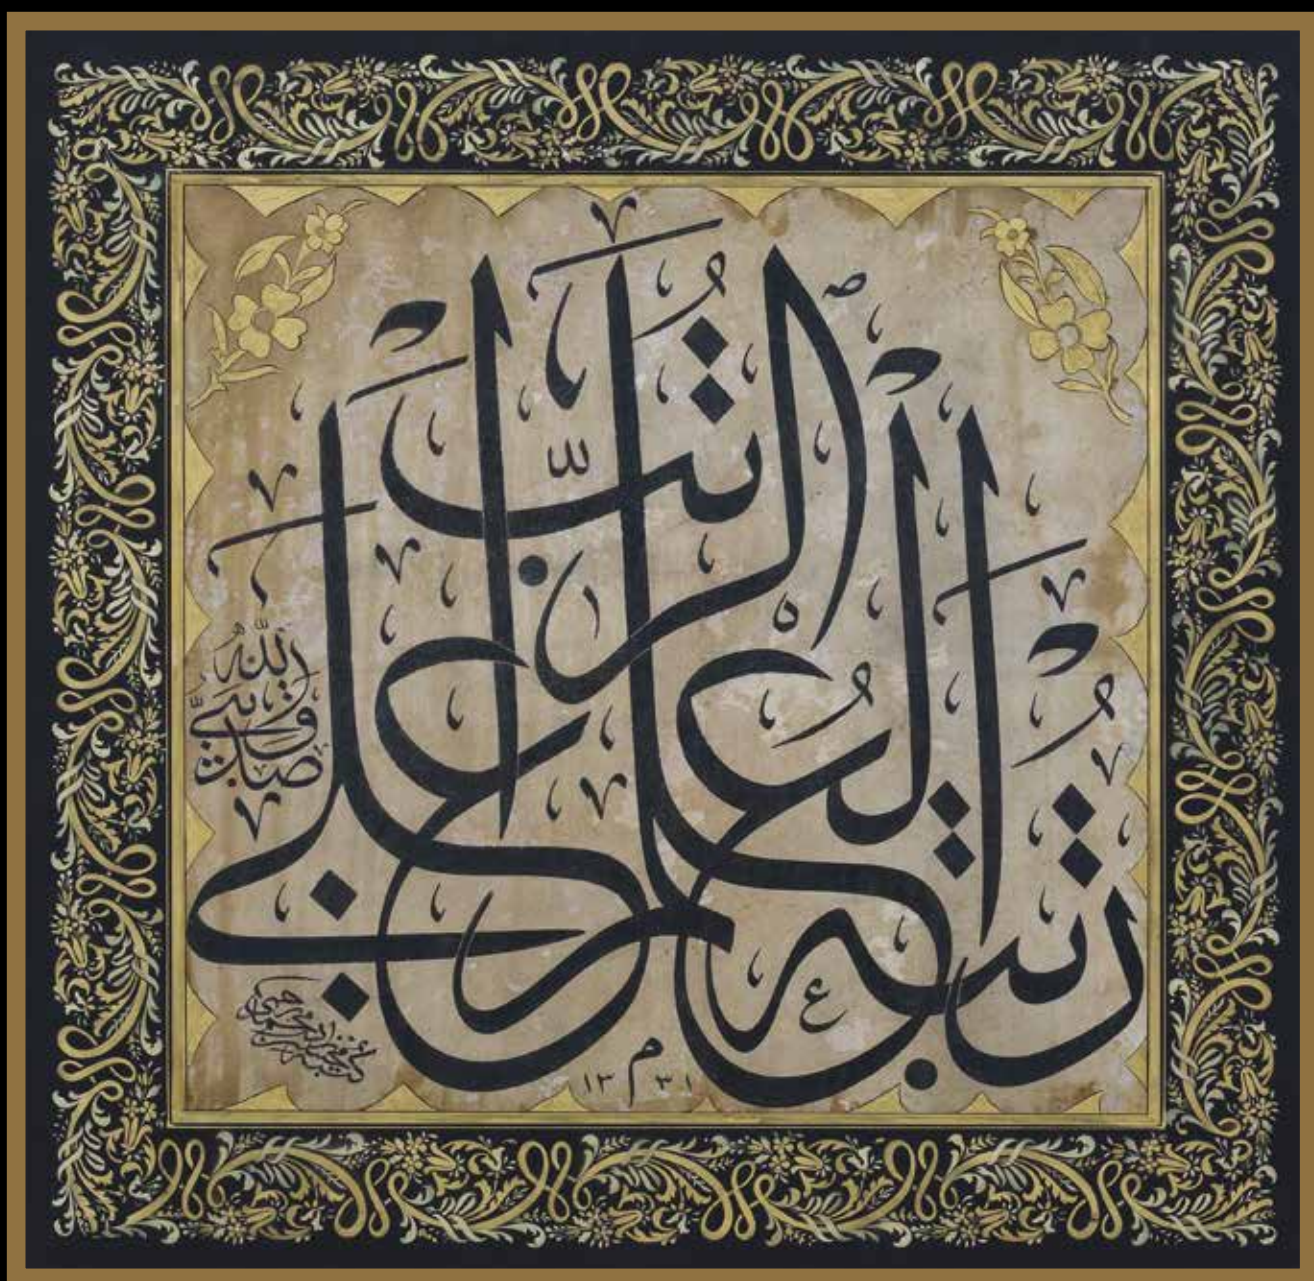 رتبة العلم أعلى الرتب
صدق نبي الله
م ١٣٣١